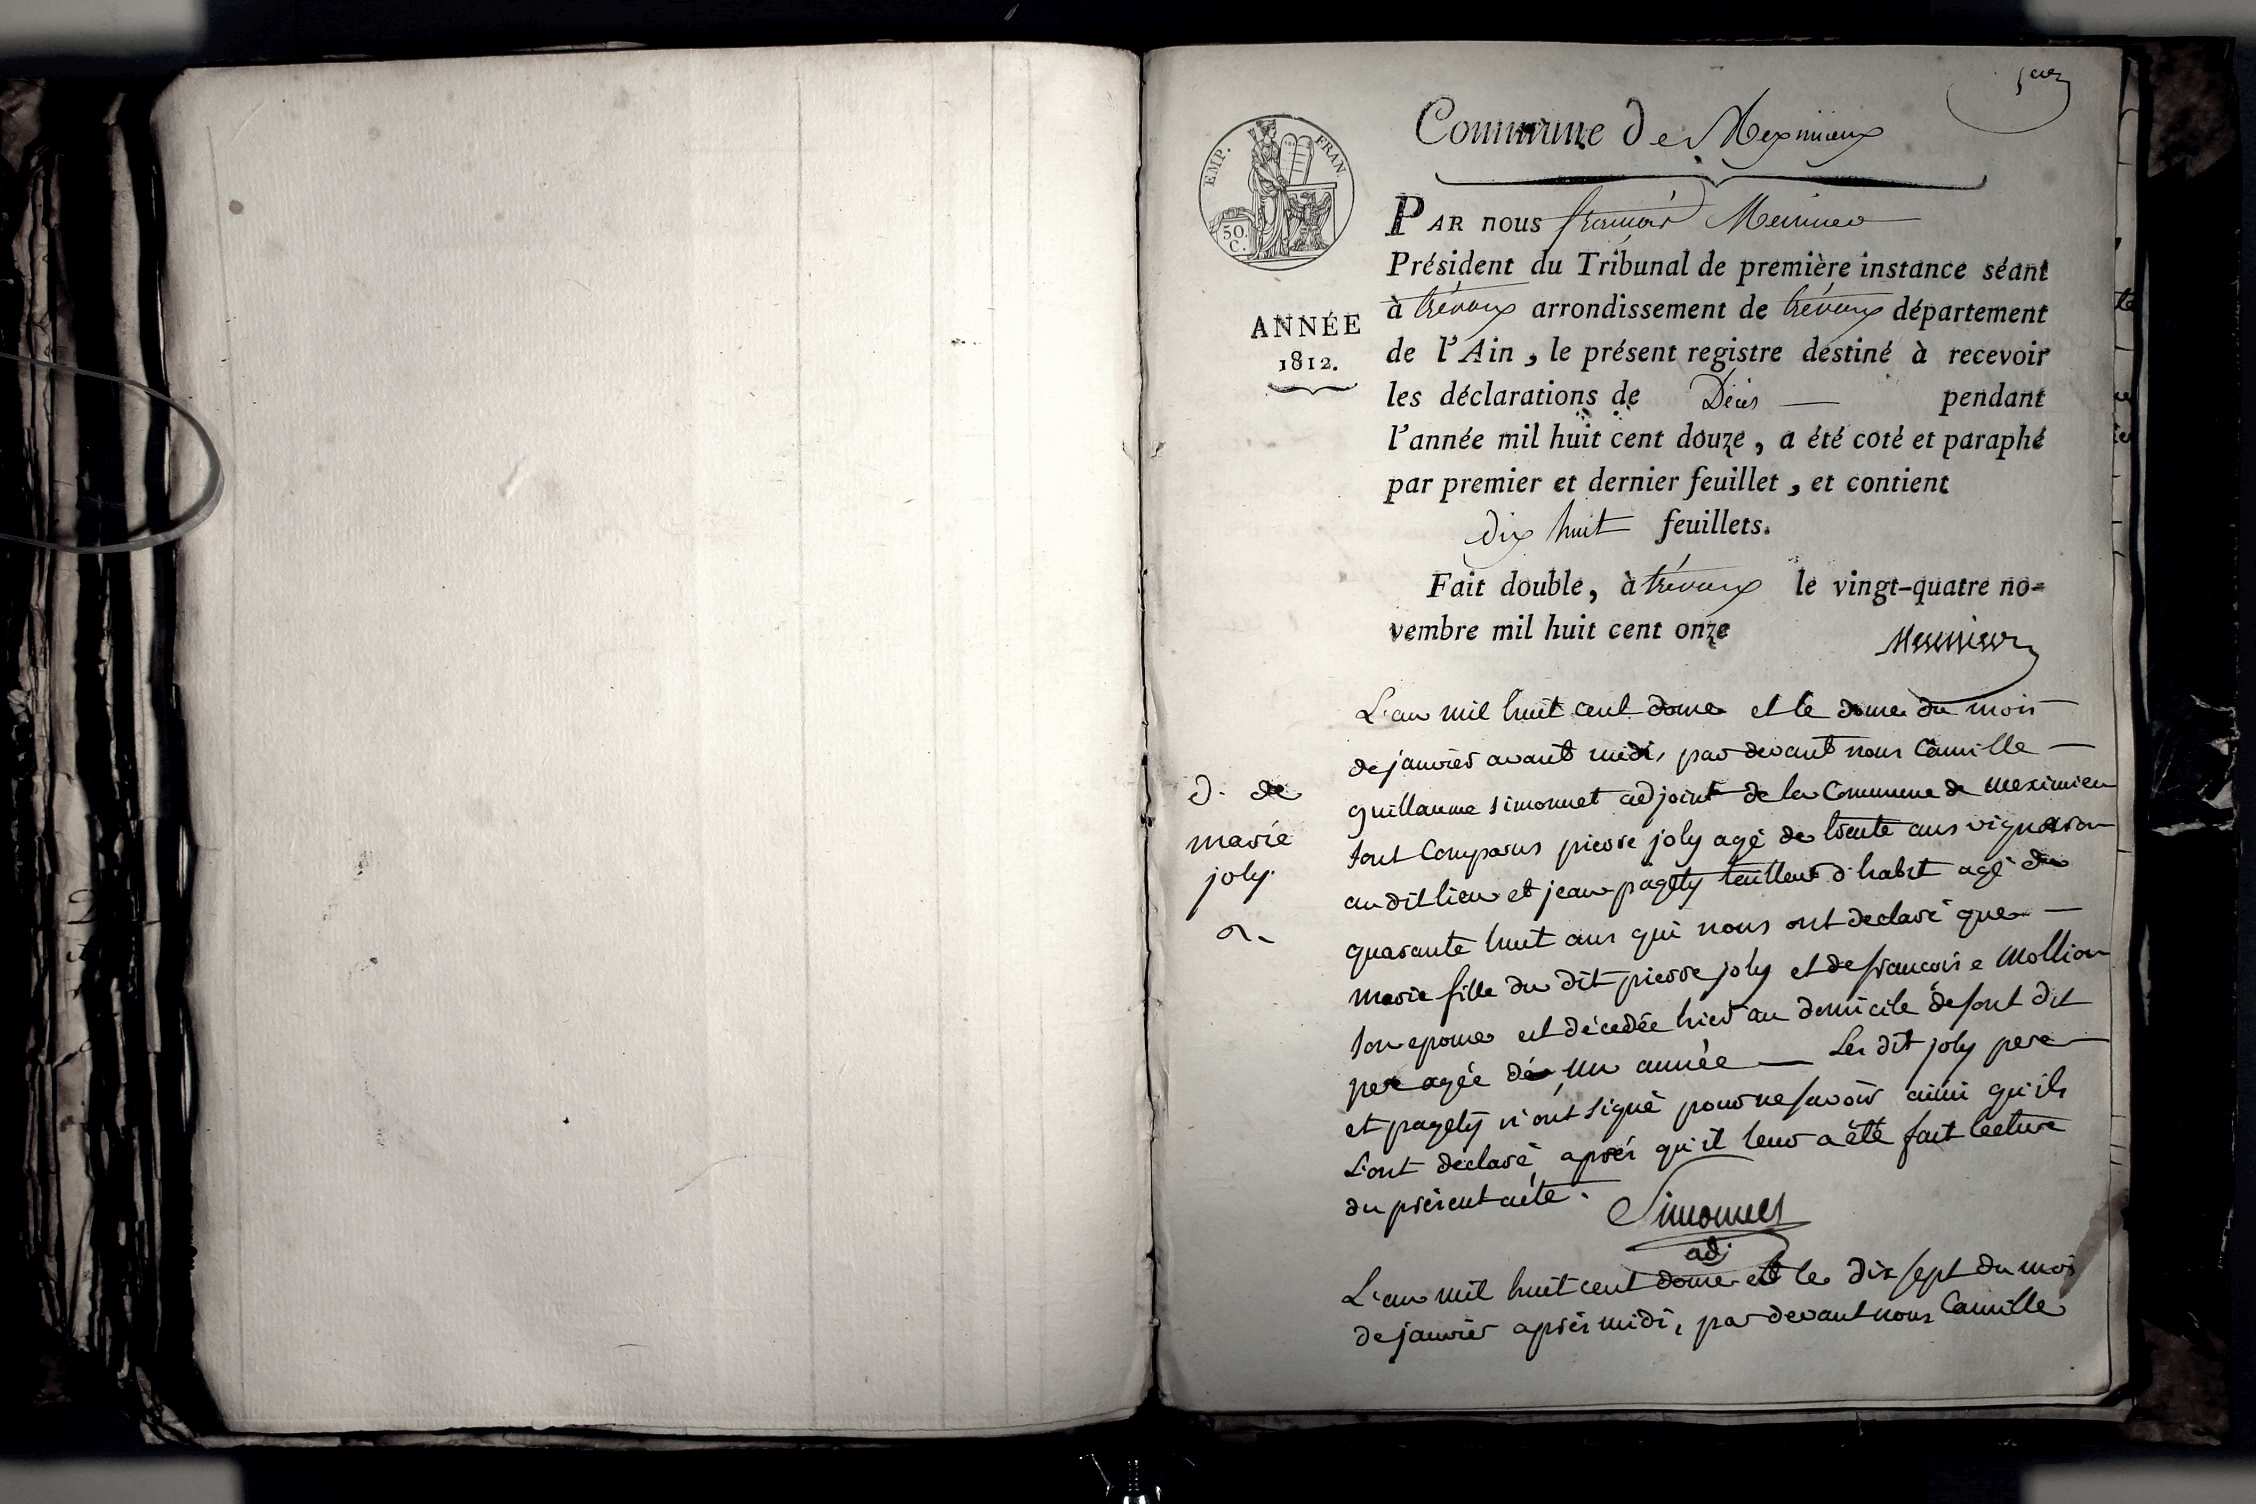 1er
Commune de Meximieux
EMP. FRAN.
50. C.
PAR nous françois Meunier
Président du Tribunal de première instance séant
à trévoux arrondissement de trévoux département
ANNÉE
1812.
de l'Ain, le présent registre destiné à recevoir
les déclarations de Décès pendant
l'année mil huit cent douze, a été coté et paraphé
par premier et dernier feuillet, et contient
dix huit feuillets.
Fait double, à trévoux le vingt-quatre no-
vembre mil huit cent onze
Meunier
L'an mil huit cent douze et le douze du mois
de janvier avant midi, par devant nous Camille
guillaume simonnet adjoint de la Commune de meximieu
sont Comparus pierre joly agé de trente ans vigneron
au dit lieu et jean pagety tailleur d'habit agé de
quarante huit ans qui nous ont declaré que
marie fille du dit pierre joly et de francoise Mollion
son epouse est décedée hier au domicile de sont dit
pere agée de un année — Les dit joly pere
et pagety n'ont signé pour ne savoir ainsi qu'ils
L'ont declaré aprés qu'il leur a été fait lecture
du présent acte.
D. de
marie
joly.
Simonnet
adj
L'an mil huit cent douze et le dix sept du mois
de janvier aprés midi, par devant nous Camille